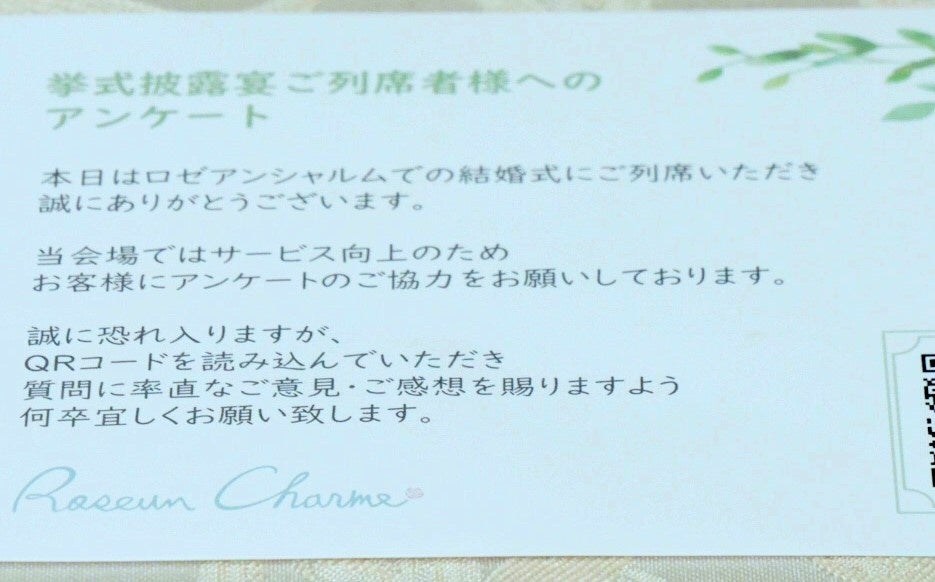 挙式披露宴ご列席者様への
アンケート
本日はロゼアンシャルムでの結婚式にご列席いただき
誠にありがとうございます。
当会場ではサービス向上のため
お客様にアンケートのご協力をお願いしております。
誠に恐れ入りますが、
QRコードを読み込んでいただき
質問に率直なご意見・ご感想を賜りますよう
何卒宜しくお願い致します。
Roseun Charme